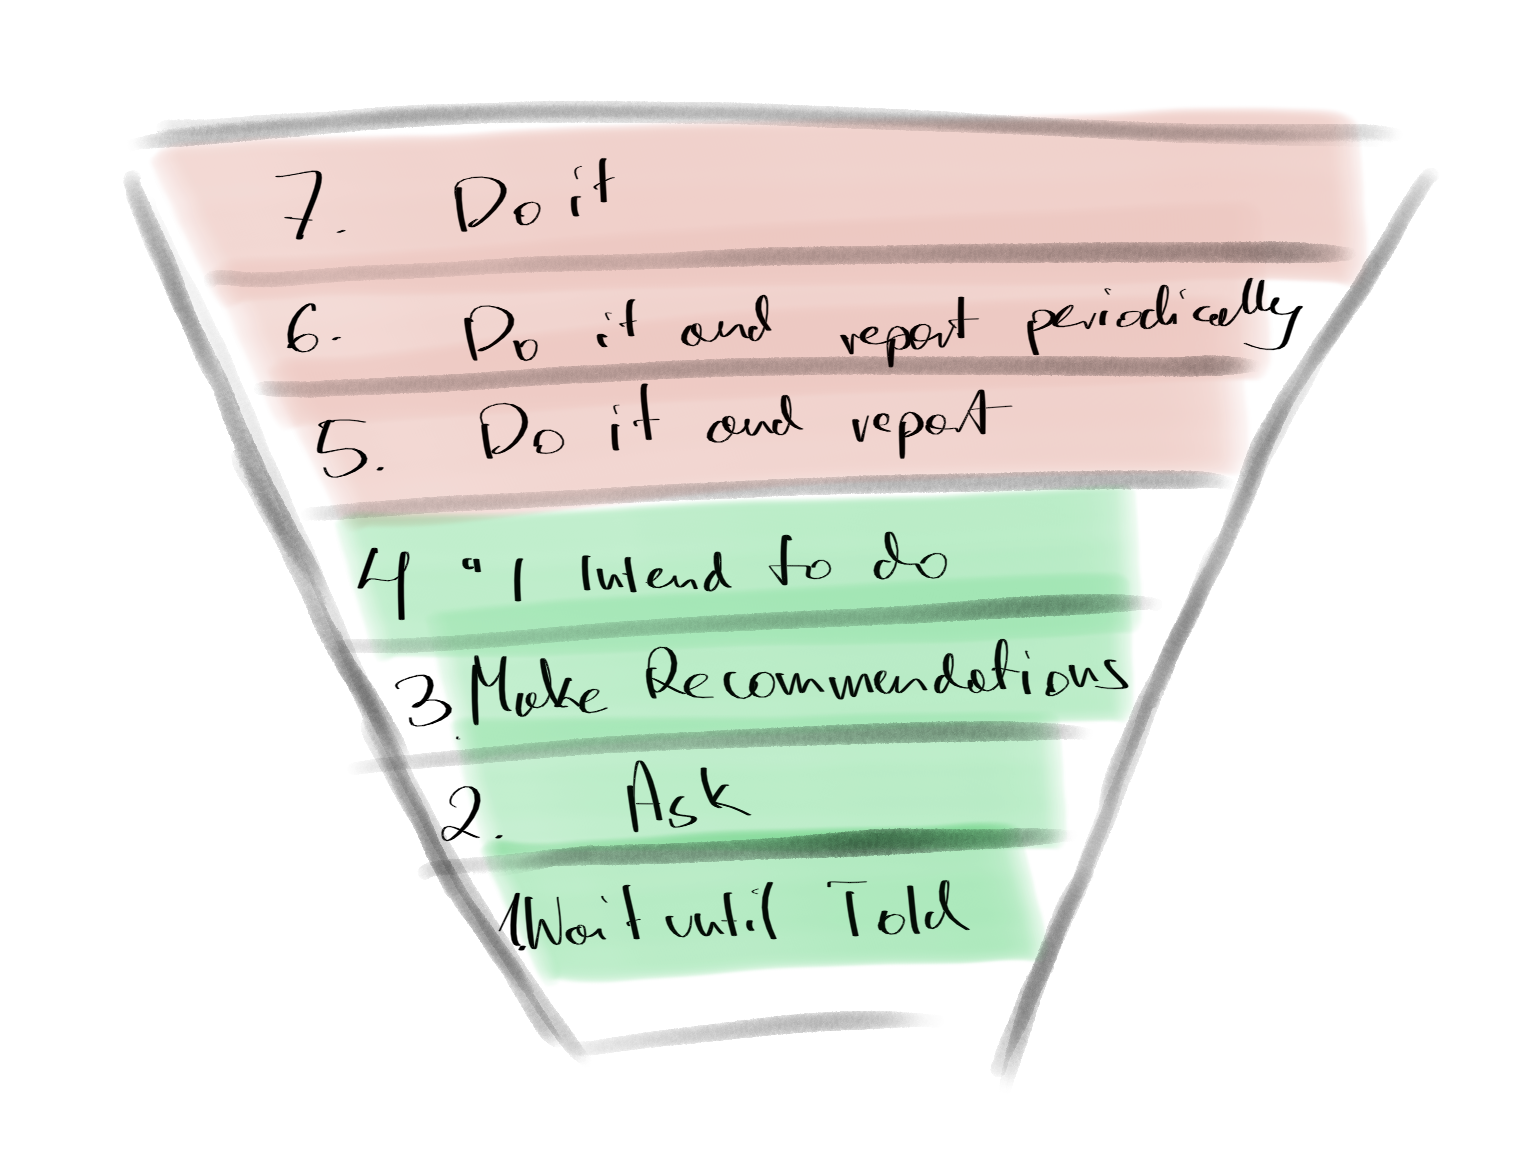 7. Do it
6. Do it and report periodically
5. Do it and report
4 "I Intend to do
3. Make Recommendations
2. Ask
1. Wait until Told